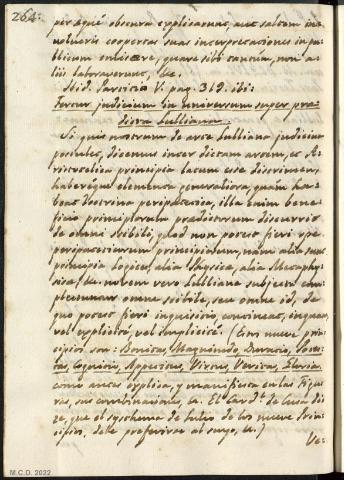 264.
per aquè obscurè explicarunt, aut saltem in-
volucris coopertas suas interpretationes in pu-
blicum emissere, quare sibi tantum, non a-
liis laboraverunt, &c.
Ibid. Parsitio V. pag. 312. ibi:
Fertur judicium in universum super præ-
dicta Lulliana.
Si quis nostrum de arte Lulliana judicium
postulet, dicemus inter dictam artem, et A-
ristotelica principia latum esse discrimen,
haberéque elementa generaliora, quam ha-
beat doctrina peripatetica, illa enim bene-
ficio principiorum prædictorum discurrit
de omni scibili, quod non potest fieri ope
peripateticorum principiorum, nam alia sunt
principia Logica, alia Physica, alia Metaphy-
sica, &c. autem vero Lulliana subjecta com-
plectuntur omne scibile, seu omne id, de
quo potest fieri inquisitio, continent, inquam,
vel explicitè, vel implicitè. (Estos nueve prin-
cipios son: Bonitas, Magnitudo, Duratio, Potes-
tas, Cognitio, Appetitus, Virtus, Veritas, Gloria.
como antes explica, y manifiesta en las Figu-
ras, sus combinaciones, &c. El Card.l de Cusa di-
ze, que el systhema de Lulio de los nueve Prin-
cipios, debe preferirse al suyo, &c.)
Ve-
M.C.D. 2022